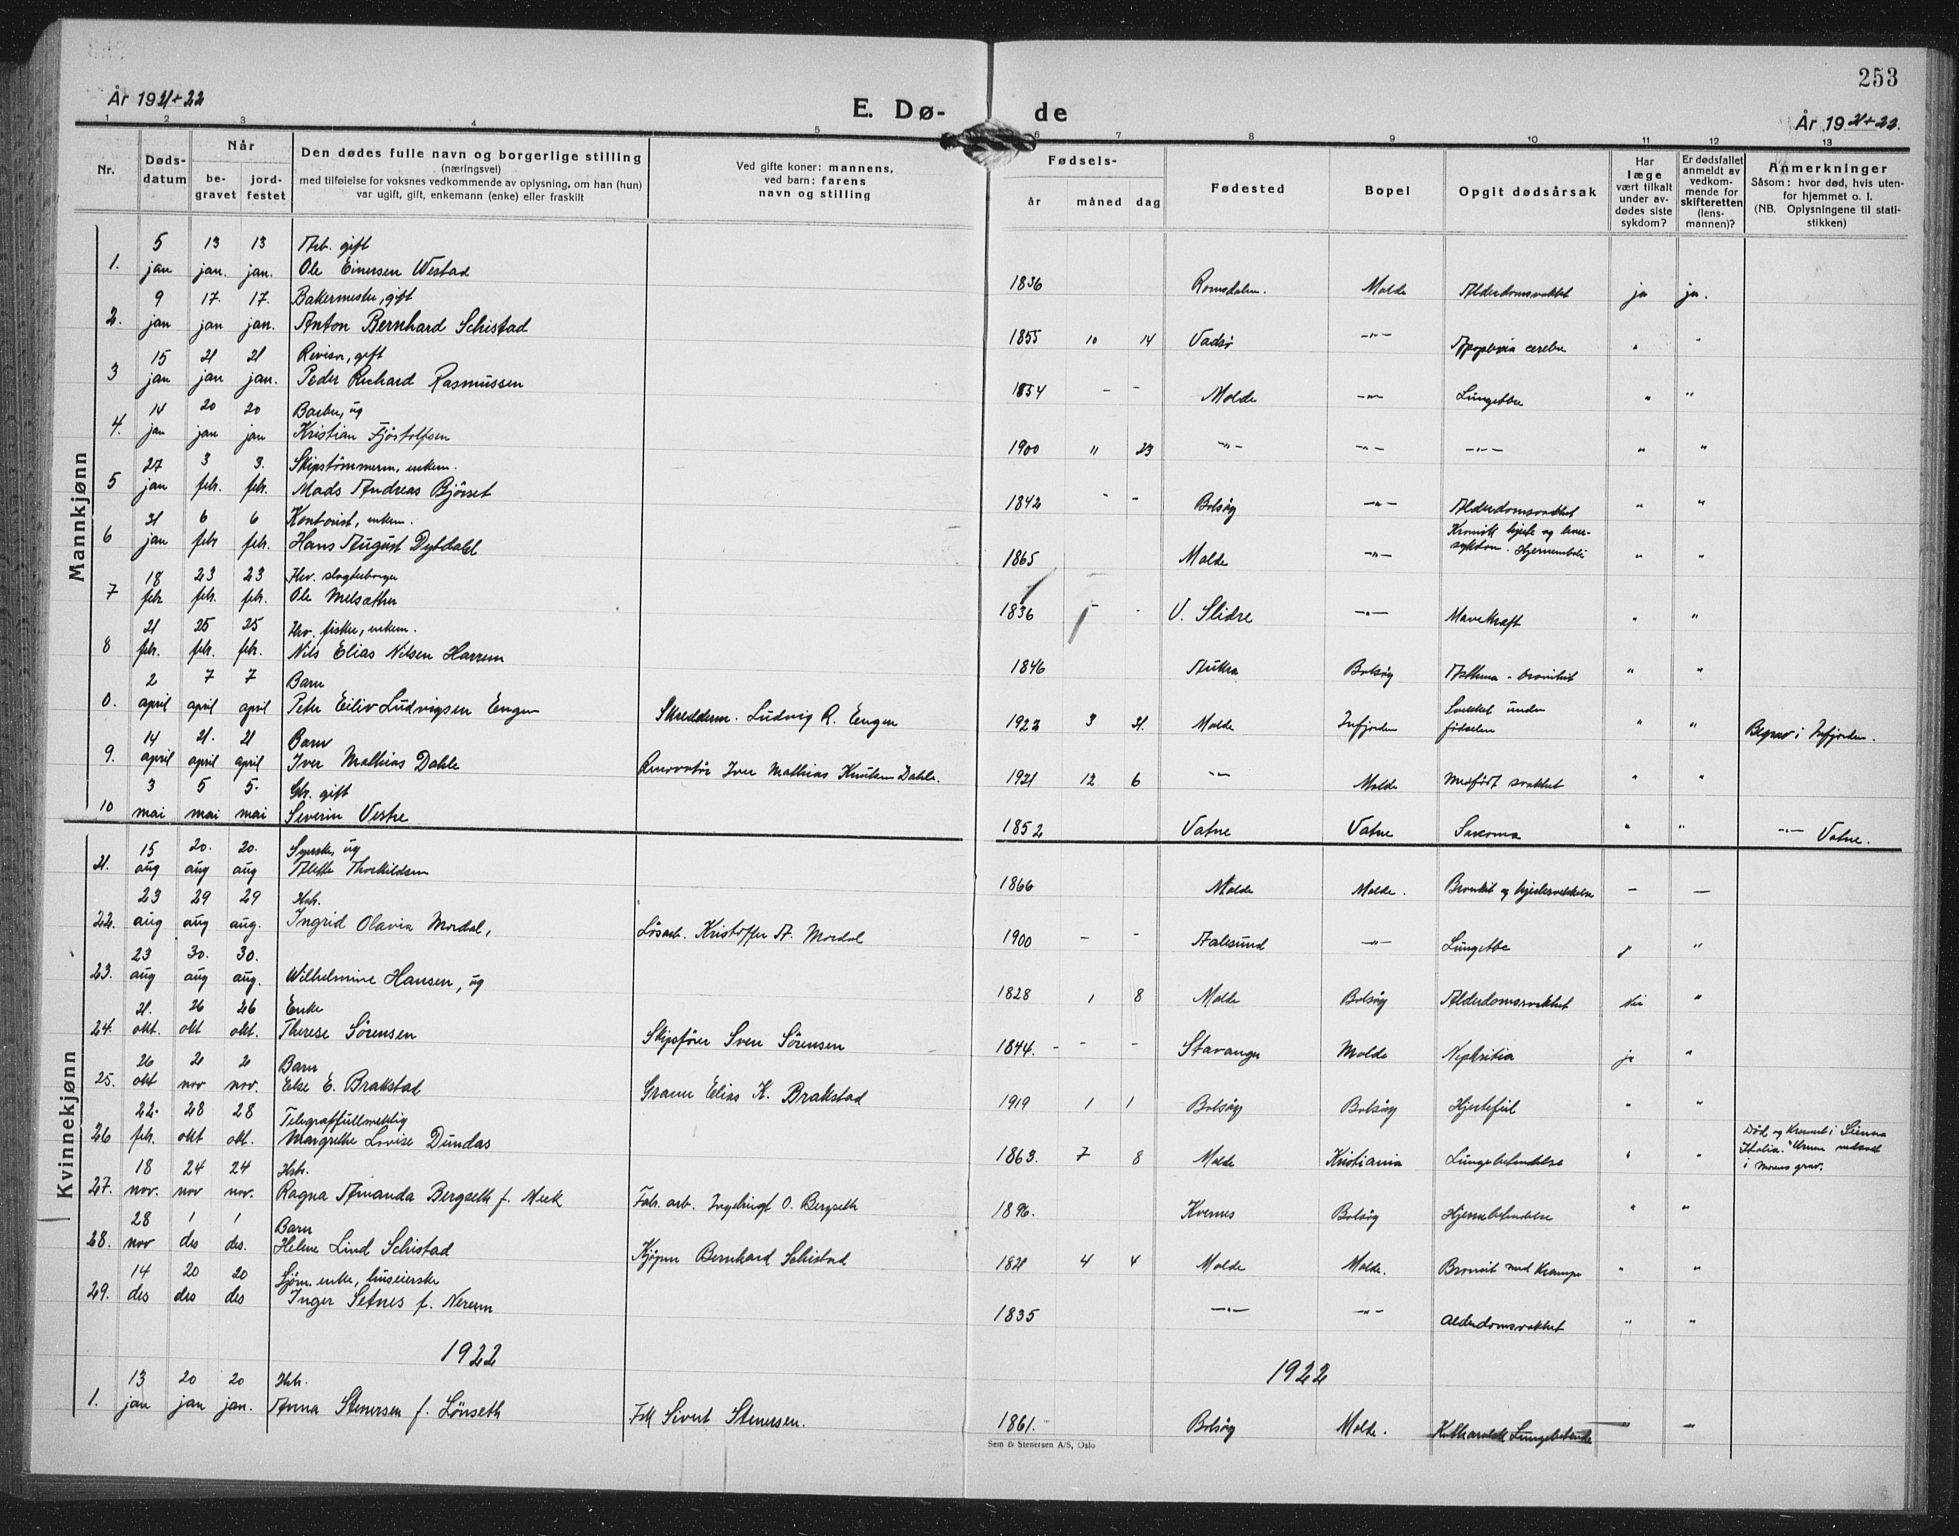 253
År 1921+22
E. Dø- de
År 1921+22.
1 2 3 4 5 6 7 8 9 10 11 12 13
Nr.
Døds-
datum
Når
be-
gravet
jord-
festet
Den dødes fulle navn og borgerlige stilling
(næringsvei)
med tilføielse for voksnes vedkommende av oplysning, om han (hun)
var ugift, gift, enkemann (enke) eller fraskilt
Ved gifte koner: mannens,
ved barn: farens
navn og stilling
Fødsels-
år måned dag
Fødested
Bopel
Opgit dødsårsak
Har
læge
vært tilkalt
under av-
dødes siste
sykdom?
Er dødsfallet
anmeldt av
vedkom-
mende for
skifteretten
(lens-
mannen)?
Anmerkninger
Såsom: hvor død, hvis uten-
for hjemmet o. l.
(NB. Oplysningene til stati-
stikken)
Mannkjønn
5 13 13 Arb. gift
1. jan jan. jan. Ole Einersen Westad 1836 Romsdalen. Molde Alderdomsvakhet ja ja.
9 17. 17. Bakermester, gift
2. jan jan jan. Anton Bernhard Schistad 1855 10 14 Vadsø -"- Apoplexia cerebri " "
15 21 21 Revisor, gift
3 jan jan jan. Peder Richard Rasmussen 1854 - - Molde -"- Lungetbc " "
14 20 20 Barber, ug
4. jan jan jan Kristian Fjøstolfsen 1900 11 23 -"- -"- -"- " "
27 3 3. Skipstømmerm, enkem.
5 jan febr. febr. Mads Andreas Bjørset 1842 - - Bolsøy -"- Alderdomsvakhet " "
31 6 6 Kontorist, enkem. Kronisk hjerte og
6 jan febr febr. Hans August Dybdahl 1865 Molde -"- sykdom. Hjerneemboli " "
18 23 23 Hv. slagterborger
7 febr febr. febr. Ole Melsæther 1836 - - V. Slidre -"- Mavekræft " "
21 25 25 Hv. fisker, enkem.
8 febr. febr. febr. Nils Elias Nilsen Harrem 1846 Aukra Bolsøy Asthma - bronkit " "
2 7 7 Barn Svekket under
0. april april april Peter Eiliv Ludvigsen Engen Skredderm. Ludvig R. Engen 1922 3 31. Molde Isfjorden fødselen " " Begrav i Isfjorden.
14 21. 21 Barn
9. april april april Iver Mathias Dahle Iver Mathias Knutsen Dahle. 1921 12 6 -"- Molde Medfødt svakhet " "
3 5 5. Gbr. gift
10 mai mai mai Severin Vestre 1852 Vatne Vatne Sarcoma " " -"- Vatne.
Kvinnekjønn
15 20. 20. Syerske, ug
21. aug aug aug Alette Thorkildsen 1866 Molde Molde. Bronkit og hjertesvekkelse - -
23 29 29 Hstr.
22. aug aug aug. Ingrid Olavia Mordal, Løsarb. Kristoffer A. Mordal 1900 - - Aalesund -"- Lungetbc "
23 30. 30.
23. aug aug aug. Wilhelmine Hansen, ug 1828 1 8 Molde Bolsøy Alderdomssvakhet Nei "
21. 26 26 Enke
24. okt. okt okt. Therese Sørensen Skipsfører Sven Sørensen 1844. - - - Stavanger Molde Nephritia ja "
26 2 2 Barn
25. okt nov nov. Else E. Brakstad Elias K. Brakstad 1919 1 1 Bolsøy Bolsøy Hjertefeil " "
22. 28 28 Telegraffullmektig Død og kremert i Sienna
26 febr. okt okt. Margrethe Lovise Dundas 1863. 7 8 Molde Kristiania Lungebetendelse " " Italia. Urnen nedsatt
i morens grav.
18 24 24 Hstr.
27. nov. nov nov. Ragna Amanda Bergseth f. Meek Fabr. arb. Ingebrigt O. Bergseth 1896. Kvernes Bolsøy Hjernebetendelse " "
28 1 1 Barn
28. nov des des. Helene Lind Schistad Kjøpm Bernhard Schistad 1921 4 4 Molde Molde. Bronkit med Krampe " "
14 20 20 Sjøm. enke, huseierske
29. des des des Inger Setnes f. Nerem 1835 -"- -"- Alderdomsvakhet " "
1922 1922
13 20 20 Hstr.
1. jan jan jan. Anna Stenersen f. Lønseth Sivert Stenersen. 1861. Bolsøy Molde. Lungebetende - -
Sem & Stenersen A/S, Oslo